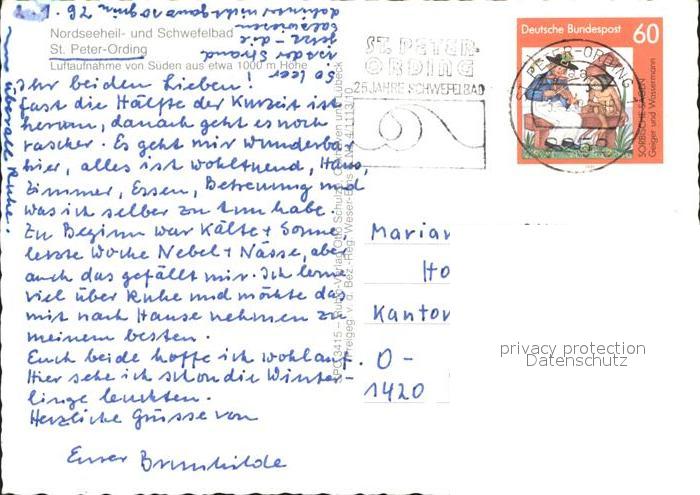 Nordseeheil- und Schwefelbad
St. Peter-Ording
Luftaufnahme von Süden aus etwa 1000 m Höhe
So leer
ist der Strand
jetzt - die
Ihr beiden Lieben!
fast die Hälfte der Kurzeit ist
herum, danach geht es noch
rascher. Es geht mir wunderba
hier, alles ist wohltuend, Haus,
Zimmer, Essen, Betreuung und
was ich selber zu tun habe.
Zu Beginn war Kälte + Sonne,
letzte Woche Nebel + Nässe, aber
auch das gefällt mir. Ich lerne
viel über Ruhe und möchte das
mit nach Hause nehmen zu
meinem besten.
Euch beide hoffe ich wohlauf.
Hier sehe ich schon die Winter-
linge leuchten.
Herzliche Grüsse von
Eurer Brunhilde
überall Ruhe.
ST. PETER-
ORDING
25 JAHRE SCHWEFELBAD
Deutsche Bundespost 60
SORBISCHE SAGEN
Geiger und Wassermann
ST. PETER-ORDING 1
Marian
Ho
Kantor
O-
1420
privacy protection
Datenschutz